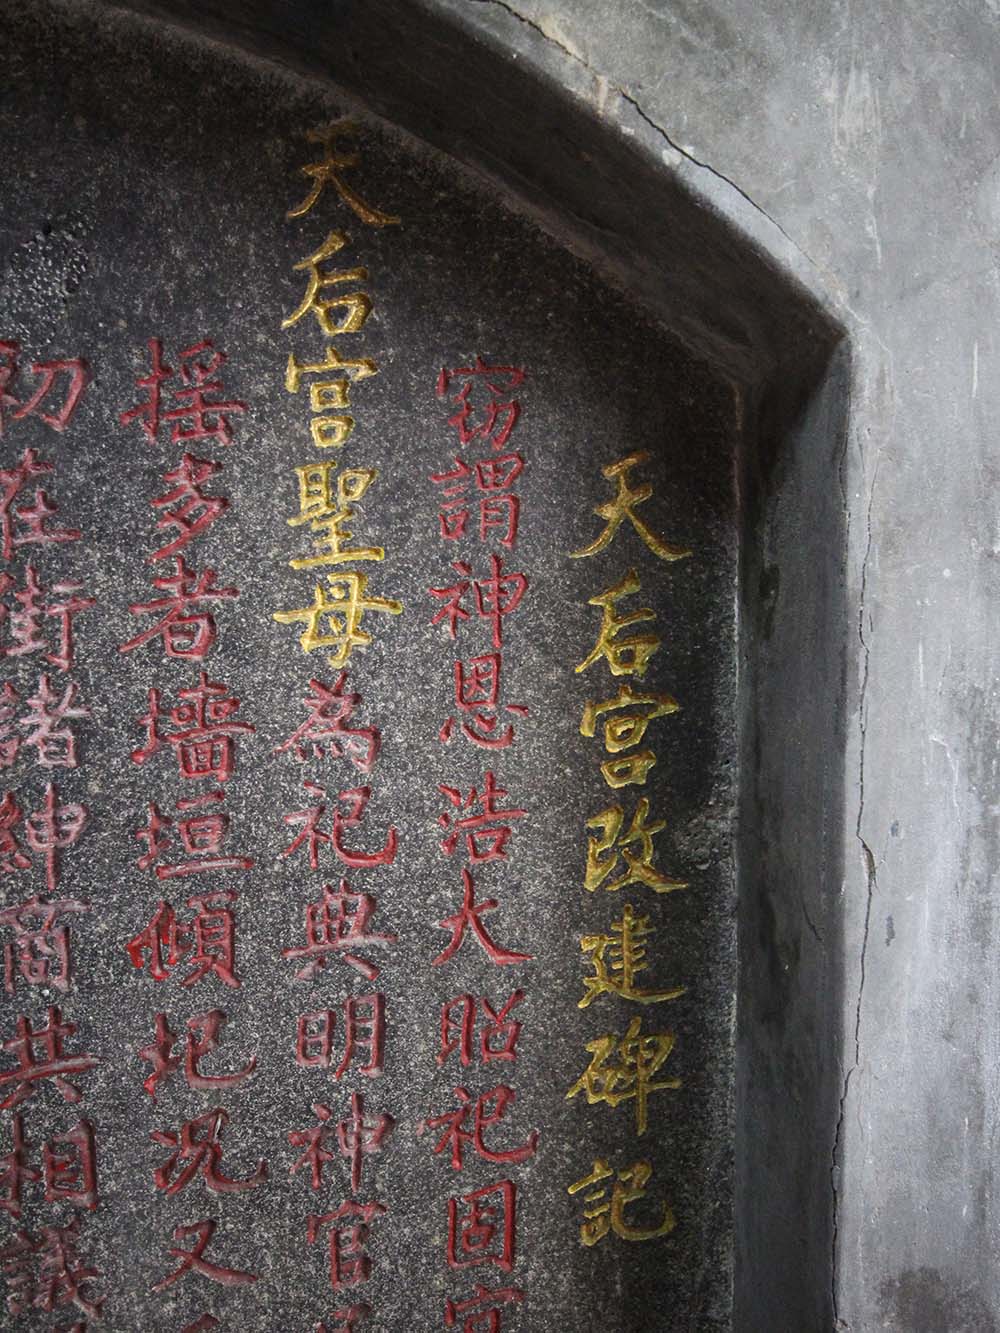 天后宮改建碑記
窃謂神恩浩大昭祀固宜
天后宮聖母為祀典明神官
搖多者墻垣傾圮况又
初在街諸紳商共相議